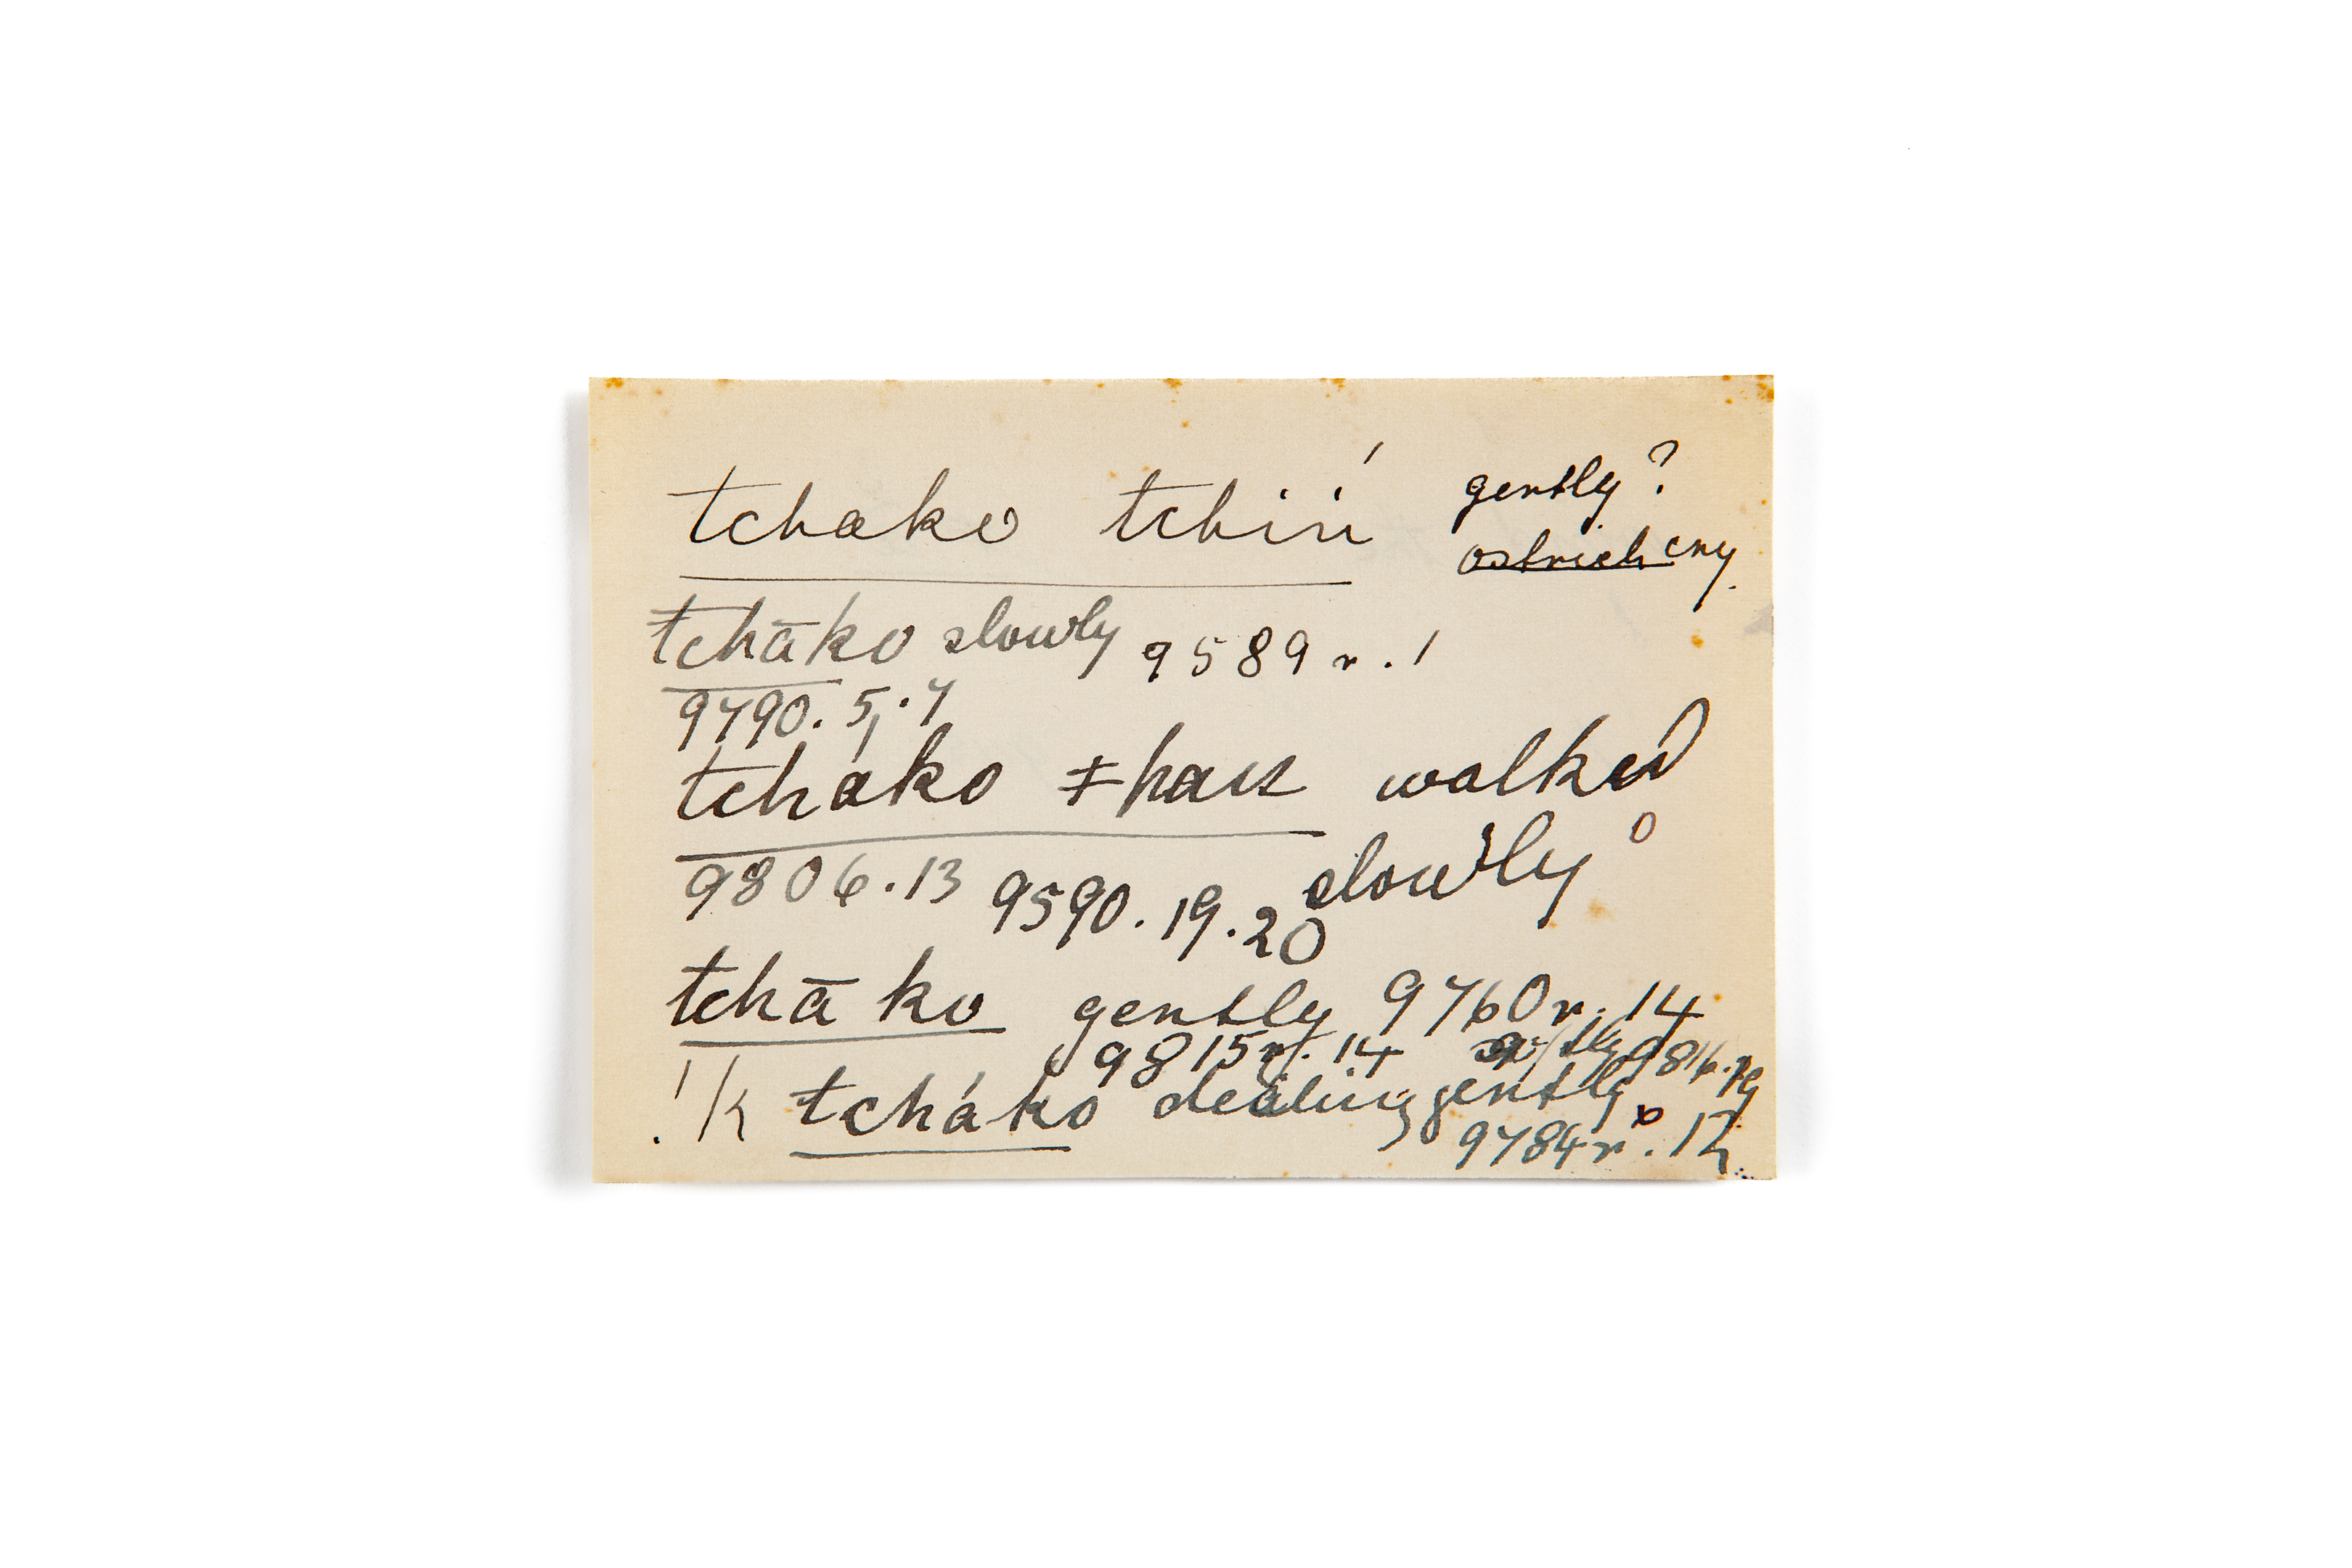 tchako tchiń gently?
ostrich cry.
tchāko slowly 9589 r. 1
9790. 5, . 7
tcháko ǂhau walked
slowly
9806.13 9590. 19. 20
tchā ko gently 9760 r. 14
9815 r. 14 9816.
!k tcháko dealing gently
9784 r. 12